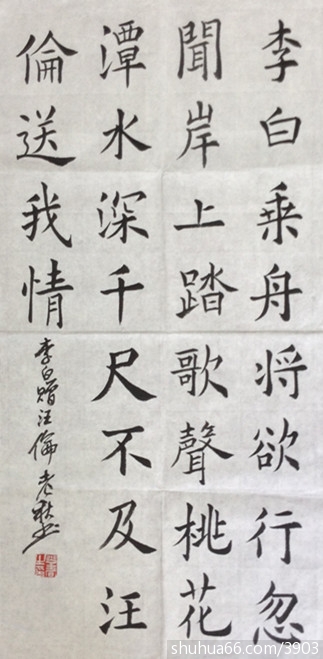 李白乗舟将欲行忽
聞岸上踏歌聲桃花
潭水深千尺不及汪
倫送我情
李白贈汪倫 老
shuhua66.com/3903